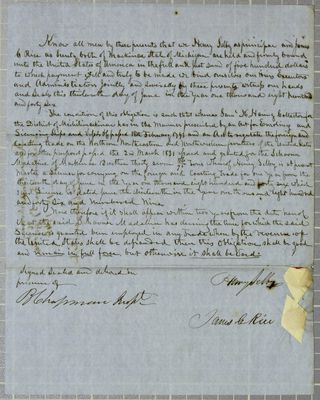 Know all men by these presents that we Henry Selby as principal and James
C Rice as Surety both of Mackinac State of Michigan are held and firmly bound
unto the United States of America in the full and just sum of five hundred dollars
to which payment well and truly to be made we bind ourselves our heirs executors
and Administrators jointly and severally by these presents witness our hands
and Seals this thirteenth day of June in the year one thousand eight hundred
and forty six
The condition of this obligation is such that whereas Saml K Collector for
the District of Michilimackinac has in the manner prescribed by an act for Enrolling and
Licensing Ships and Vessels passed 18th February 1793 and an Act to regulate the foreign and
Coasting trade on the Northern Northeastern and Northwestern frontiers of the United States
and for other purposes passed the 2nd March 1831 issued and granted for the Schooner
of Mackinac Burthen thirty seven Tons whereof Henry Selby is at present
Master a License for carrying on the foreign and Coasting Trade for one year from the
thirteenth day of June in the year one thousand eight hundred and forty six which
said License is dated June the thirteenth in the year one thousand eight hundred
and forty six and Numbered Nine
Now therefore if it shall appear within two years from the date hereof
that the said Schooner has not during the time for which the said
License is granted been employed in any trade whereby the revenue of
the United States shall be defrauded then this Obligation shall be void
and remain in full force but otherwise it shall be void
Signed Sealed and delivered in
presence of
B Chapman Inspr
Henry Selby
James C Rice